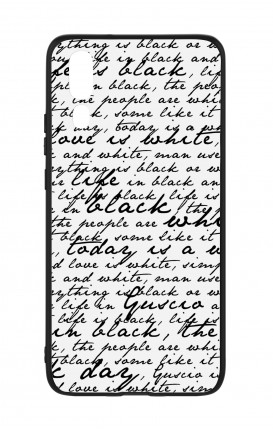 ything is black or w
life in black and
fe is black, life
in black, the peop
k, one people are whi
black, some like it
way, today is a wh
love is white,
and white, man use
erything is black or w
life in black an
life is black, life i
in black, they
the people are whi
black, some like it
today is a w
d love is white, simp
and white, man use
ything is black or w
life in Guscio a
life is black, life is
in black, the
the people are whi
black, some like it
k day, Guscio i
love is white, sim